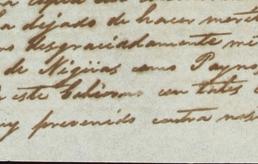 a dejado de hacer
no desgraciadamente
de Nigüas como Payno
este Gobierno con tales
uy prevenido contra